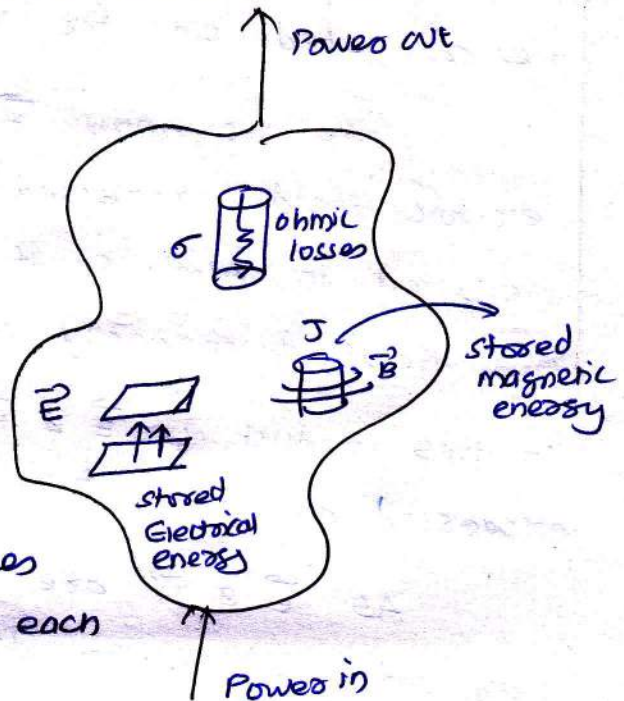 Power out
σ
ohmic
losses
J
B
E
stored
magnetic
energy
stored
Electrical
energy
es
each
Power in